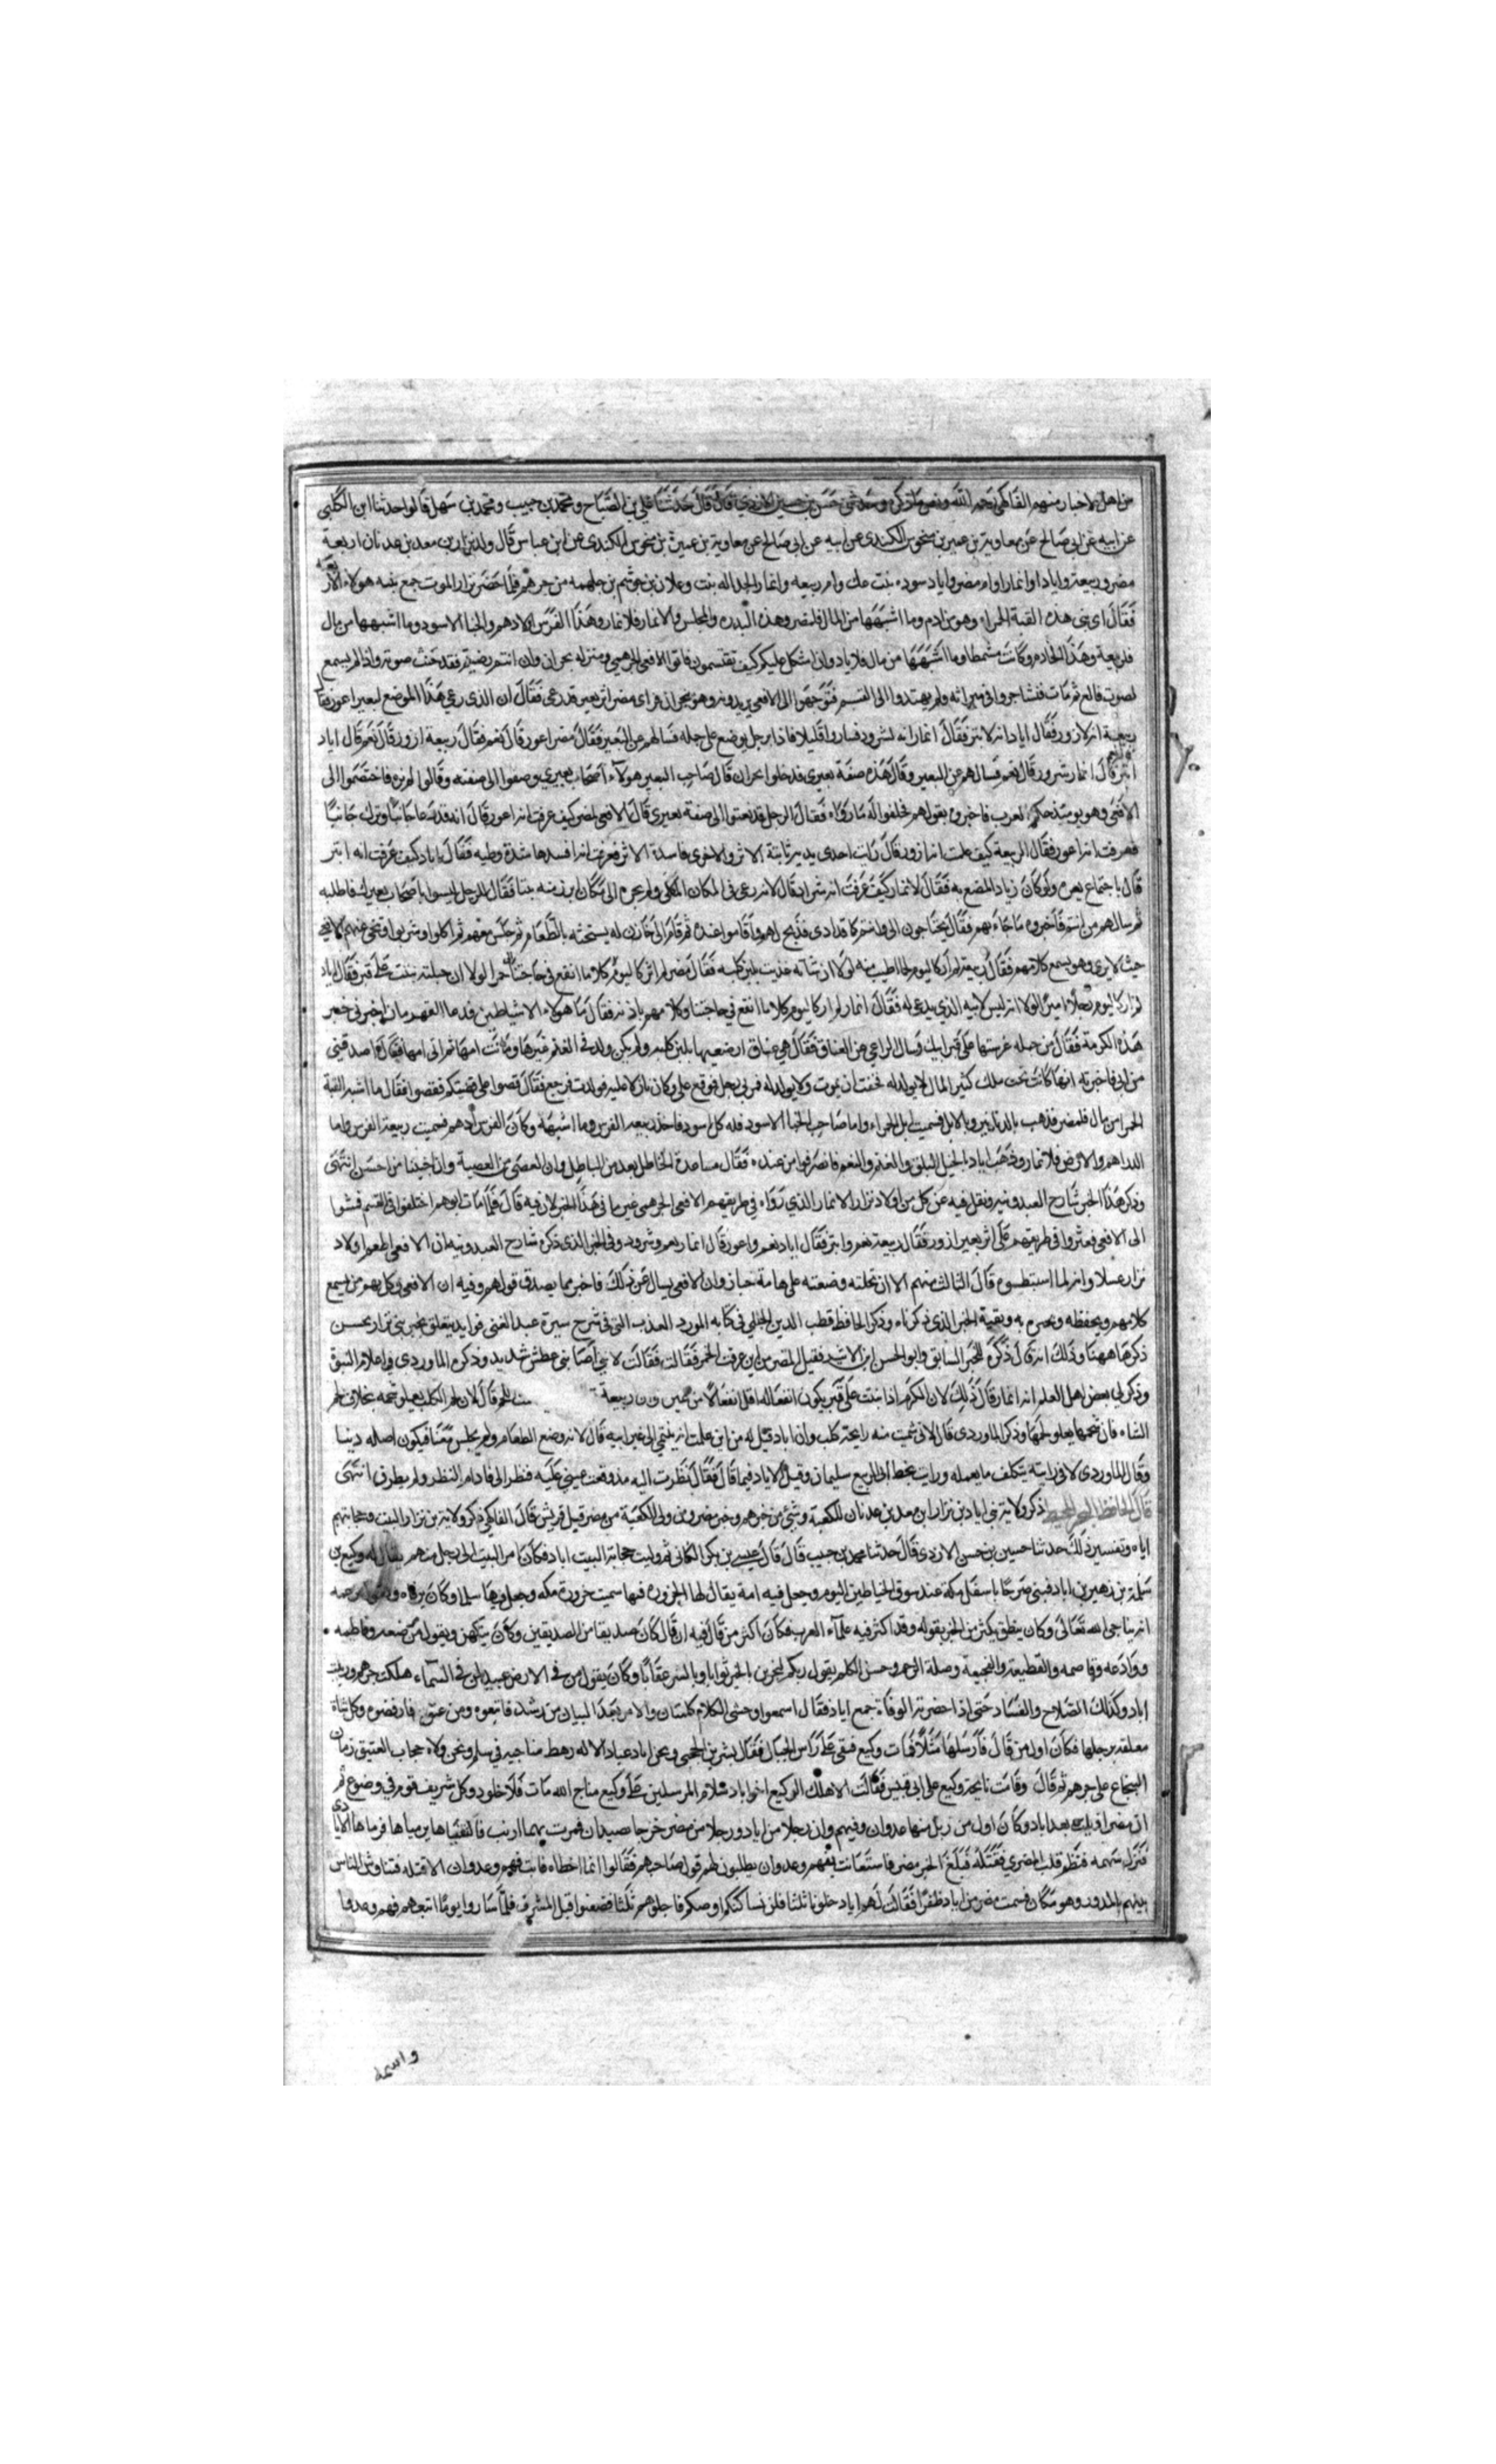 من اهل الاخبار منهم الفاكهي رحمه الله ونص ما ذكره وحدثني حسن بن حسين الازدي قال قال حدثنا علي بن الصباح ومحمد بن حبيب ومحمد بن سهل قالوا حدثنا ابن الكلبي
عن ابيه عن ابي صالح عن معاوية بن عمير بن مخوس الكندي عن ابيه عن ابي صالح عن معاوية بن عميرة بن مخوس الكندي عن ابن عباس قال ولد نزار بن معد بن عدنان اربعة
مضر وربيعة واياد وانمار وام مضر واياد سوده بنت عك وام ربيعه وانمار الجداله بنت وعلان بن جوشم بن جلهمه من جرهم فلما حضر نزار الموت جمع بنيه هولاء الاربعه
فقال اي بني هذه القبة الحمراء وهو من ادم وما اشبهها من المال فلمضر وهذه البدره والمجلس والانمار فلانمار وهذا الفرس الادهم والخبا الاسود وما اشبهها من مال
فلربيعة وهذا الخادم وكانت شمطا وما اشبهها من مال فلاياد وان اشكل عليكم كيف تقتسمون فاتوا الافعى الجرهمي ومنزله بنجران وان انتم رضيتم فقد
لصوت قاله ثم مات فتشاجروا في ميراثه ولم يهتدوا الى القسم فتوجهوا الى الافعى يريدونه وهو بنجران فراى مضر اثر بعير قد رعى فقال ان الذي رعى هذا الموضع لبعير اعور فقال
ربيعة انه لازور فقال اياد انه لابتر فقال انمار انه لشرود فساروا قليلا فاذا برجل يوضع على جمله فسالهم عن البعير فقال مضر اعور قال نعم فقال ربيعة ازور قال نعم قال اياد
ابتر قال انمار شرود قال نعم فسالهم عن البعير وقال هذه صفة بعيري فدخلوا نجران قال صاحب البعير هولاء اصحاب بعيري وصفوا الي صفته وقالوا لم نره فاختصموا الى
الافعى وهو يومئذ حكم العرب فاخبروه بقولهم فحلفوا له ما راوه فقال الرجل قد نعتوا الي صفة بعيري قال الافعى لمضر كيف عرفت انه اعور قال انه قد رعا جانبا وترك جانبا
فعرفت انه اعور فقال لربيعة كيف علمت انه ازور قال رايت احدى يديه ثابتة الاثر والاخرى فاسدة الاثر فعرفت انه افسدها شدة وطيه فقال لاياد كيف عرفت انه ابتر
قال باجتماع بعره ولو كان زيالا لمصع به فقال لانمار كيف عرفت انه شرود قال لانه رعى في المكان المكلي ولم يجره الى مكان ابرز منه نبتا فقال للرجل ليسوا باصحاب بعيرك فاطلبه
ثم سالهم من انتم فاخبروه ما جاء بهم فقال تحتاجون الي وانتم كما قد ارى فذبح لهم واقاموا عنده ثم قام الى خازن له يستحثه بالطعام ثم جلس معهم ثم اكلوا وشربوا وتنحى عنهم الافعى
حيث لا يرى وهو يسمع كلامهم فقال ربيعة لم ار كاليوم لحما اطيب منه لولا ان شاته غذيت بلبن كلبه فقال مضر لم ار كاليوم خمرا لولا ان حبلته نبتت على قبر فقال اياد
لم ار كاليوم رجلا اميرا لولا انه ليس لابيه الذي يدعى له فقال انمار لم ار كاليوم كلاما انفع في حاجتنا وكلامهم باذنه فقال ما هولاء الا شياطين فدعا القهرمان اخبرني خبر
هذه الكرمة فقال من حبله غرستها على قبر ابيك وسال الراعي عن العناق فقال هي عناق ارضعتها بلبن كلبه ولم يكن ولد في الغنم غيرها وماتت امها ثم اتى امها فقال اصدقيني
من ابي فاخبرته انها كانت تحت ملك كثير المال لا يولد له فخفت ان يموت ولا يولد له فمر بي رجل فوقع علي وكان نازلا عليه فولدت فرجع فقال قصوا علي قصتكم فقصوا فقال ما اشبه القبة
الحمرا من مال فلمضر فذهب بالدنانير وبالابل فسميت ابل الحمراء واما صاحب الخبا الاسود فله كل اسود فاخذ ربيعه الفرس وما اشبهه وكان الفرس ادهم فسميت ربيعة الفرس واما
الدراهم والارض فلانمار وذهب اياد بالخيل البلق والغنم والنعم فانصرفوا من عنده فقال مساعدة الخاطل يعد من الباطل وان العصى من العصية وان اخينا من احسن انتهى
وذكر هذا الخبر شارح العبدونيه ونقل فيه عن كل من اولاد نزار الا انمار الذي راوه في طريقهم الافعى الجرهمي غير ما في هذا الخبر لان فيه قال فلما مات ابوهم اختلفوا في القسم فمشوا
الى الافعى فعثروا في طريقهم على اثر بعير ازور فقال ربيعة نعم وابتر فقال اياد نعم واعور قال انمار نعم وشرود وفي الخبر الذي ذكره شارح العبدونيه ان الافعى اطعم اولاد
نزار عسلا وانهم لما استطعموه قال الثالث منهم الا ان نحلته وضعته على هامة جبار وان الافعى يسال عن ذلك فاخبر بما يصدق قولهم وفيه ان الافعى وكل بهم من يسمع
كلامهم ويحفظه ويخبره به وبقية الخبر الذي ذكرناه وذكر الحافظ قطب الدين الحلبي في كتابه المورد العذب الهني في شرح سيرة عبد الغني فوايد يتعلق بخبر بني نزار يحسن
ذكرها ههنا وذلك انه قال ذكره للخبر السابق وابو الحسن ابن الاثير فقيل لمضر من اين عرفت الخمر فقال لاني اصابني عطش شديد وذكره الماوردي في اعلام النبوة
وذكر لي بعض اهل العلم انه انمار قال ذلك لان الكرم اذا نبتت على قبر يكون انفعاله اقل انفعالا من خمير وان ربيعة قال لان لحم الكلب يعلو شحمه بخلاف لحم
الشاه فان شحمها يعلو لحمها وذكر الماوردي قال لاني شممت منه رايحة كلب وان اياد قيل له من اين علمت انه ينتمي الى غير ابيه قال لانه وضع الطعام ولم يجلس معنا فيكون اصله دنيا
وقال الماوردي لاني رايته يتكلف ما يعمله ورايت بخط ابي الربيع سليمان وقيل لاياد فيما قال فقال نظرت اليه مذ وقعت عيني عليه فنظر الي فادام النظر ولم يطرف انتهى
قال الحافظ ذكر ولاية بني اياد بن نزار ابن معد بن عدنان للكعبة وشيء من خبرهم وخبر مضر ومن ولي الكعبة من مضر قبل قريش قال الفاكهي ذكر ولاية بن نزار البيت وحجابتهم
اياه وتفسير ذلك حدثنا حسين بن حسن الازدي قال حدثنا محمد بن حبيب قال قال عيسى بن بكر الكناني ثم وليت حجابة البيت اياد فكان امر البيت الى رجل منهم يقال له وكيع بن
سلمة بن زهير بن اياد فبنى صرحا باسفل مكة عند سوق الخياطين اليوم وجعل فيه امة يقال لها الحزوره فبها سميت حزورة مكه وجعل فيها سلما وكان يرقاه
انه يناجي الله تعالى وكان ينطق بكثير من الخبر بقوله وقد اكثر فيه علماء العرب فكان اكثر من قال فيه ان قال كان صديقا من الصديقين وكان يتكهن ويقول مرضعه وفاطمه
ووادعه وقاصمه والقطيعة والفجيعة وصلة الرحم وحسن الكلم يقول ربكم ليجزين بالخير ثوابا وبالشر عقابا وكان يقول من في الارض عبيد لمن في السماء هلكت جرهم وربلت
اياد وكذلك الصلاح والفساد حتى اذا حضرته الوفاة جمع ايادا فقال اسمعوا وصي الكلام كلمتان والامر بعد البيان من رشد فاتبعوه ومن غوى فارفضوه وكل شاة
معلقه برجلها فكان اول من قال فارسلها مثلا فمات وكيع فنعي على راس الجبال فقال بشر بن الحجبي ونحن اياد عباد الاله رهط مناجيه في سلم ونحن ولاه حجاب العتيق زمان
النخاع على جرهم ثم قال وقامت نايحة وكيع على ابي قبيس فقالت الا هلك الوكيع اخو اياد سلام المرسلين على وكيع مناجي الله مات فلا خلود وكل شريف قوم في وضوع ثم
ان مضر اديلت بعد اياد وكان اول من ربل منها عدوان وفهم وان رجلا من اياد ورجلا من مضر خرجا يصيدان فمرت بهما ارنب فاكتنفاها يرميانها فرماها الايادي
فنزل سهمه فنظم قلب المضري فقتله فبلغ الخبر مضر فاستعانت بفهم وعدوان يطلبون لهم قود صاحبهم فقالوا انما اخطاه فابت فهم وعدوان الا قتله فتناوش الناس
بينهم بالمدور وهو مكان فسمت مضر من اياد ظفرا فقالت لهم اياد خلونا ثلثا فلن نساكنكم ارضكم فاجلوهم ثلثا فظعنوا قبل المشرق فلما ساروا يوما اتبعهم فهم وعدوا
واسمه